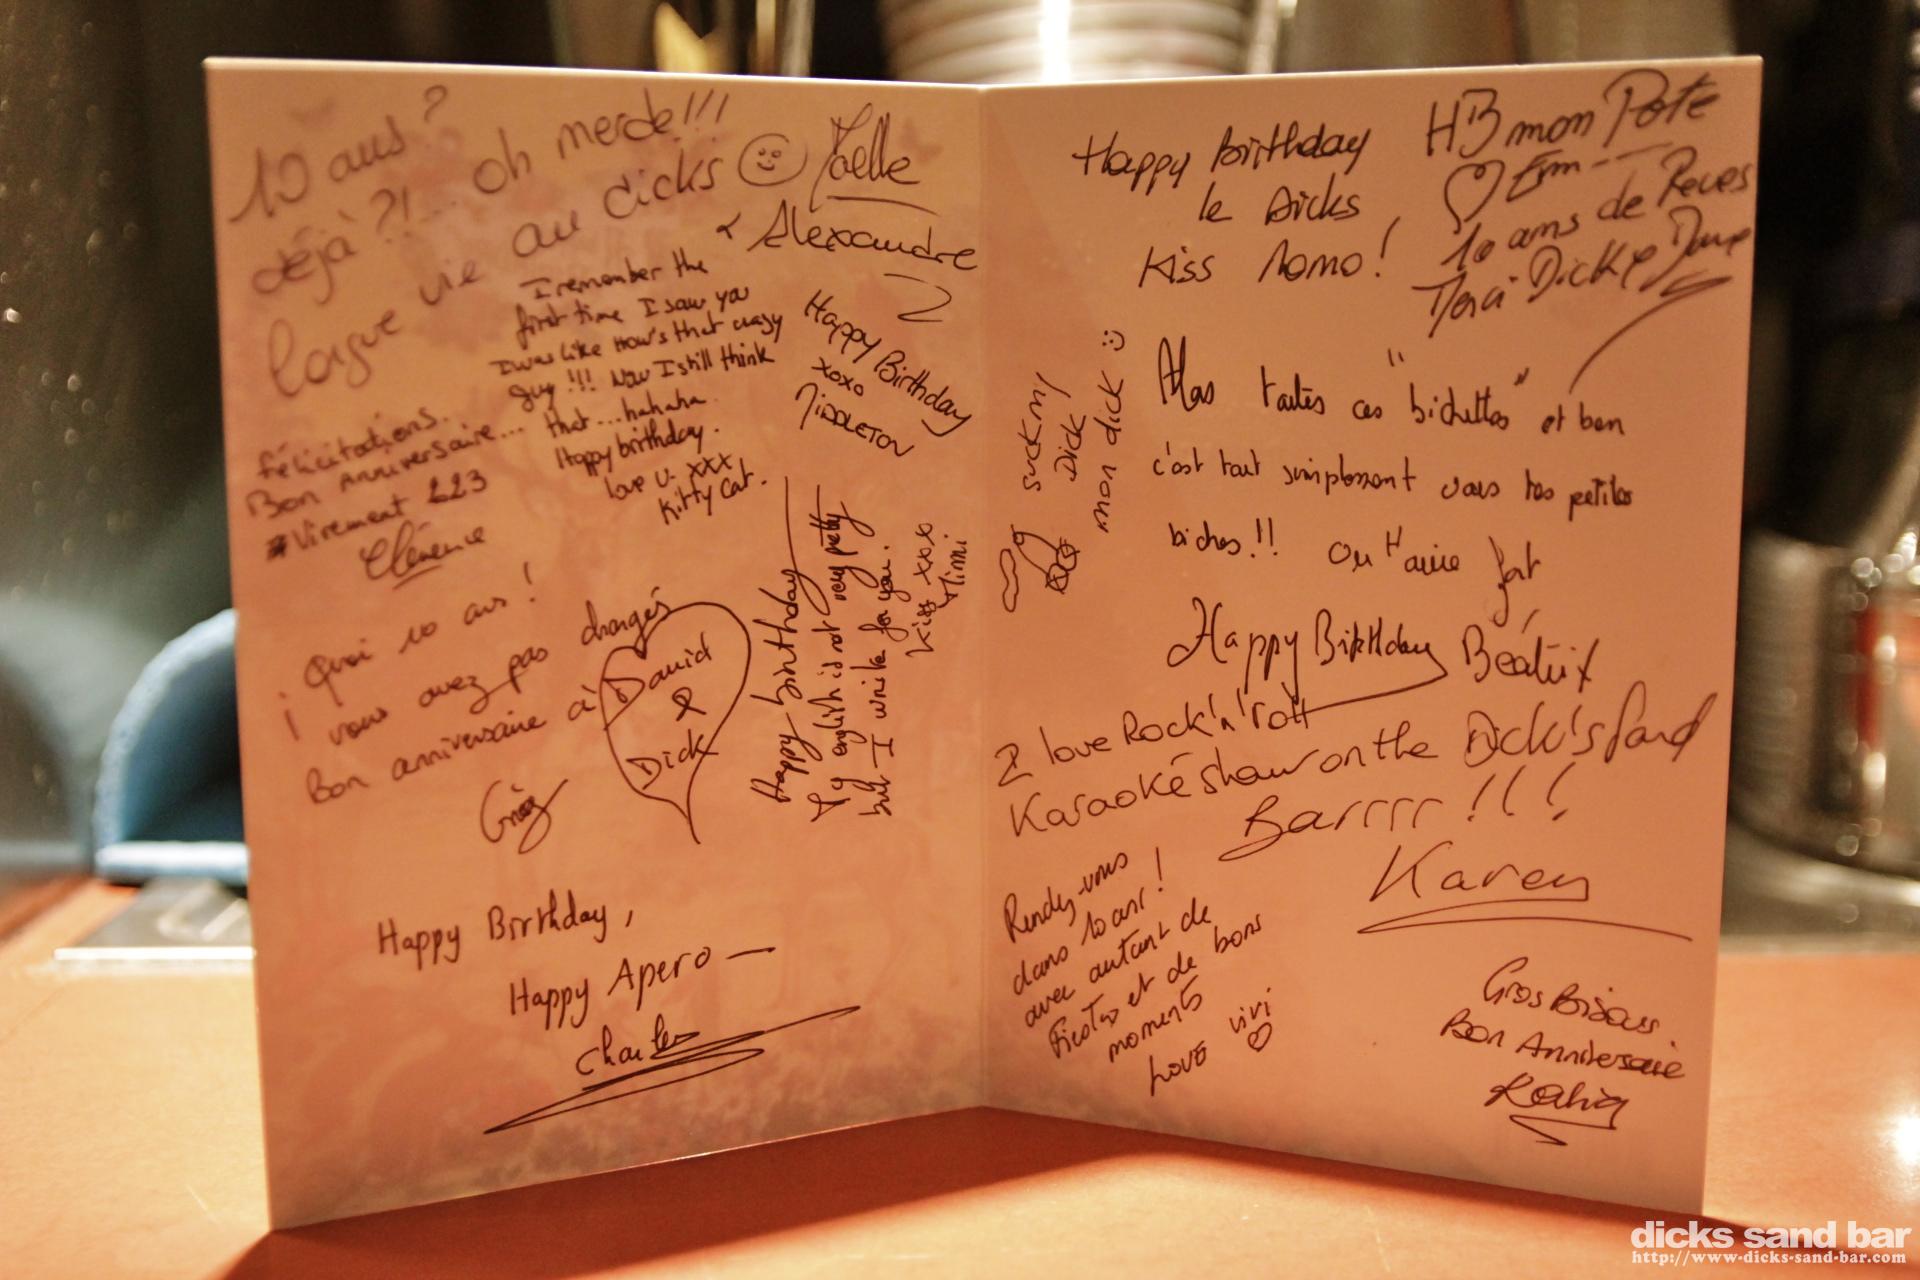 10 ans?
déjà?!... oh merde!!!
longue vie au dicks
Yaelle
& Alexandre
I remember the
first time I saw you
I was like How's that crazy
guy!!! Now I still think
that...hahaha.
Happy birthday.
love U. xxx
Kitty Cat.
Happy Birthday
xoxo
MIDDLETON
Félicitations.
Bon Anniversaire...
#Virement 223
Clémence
¡ Quoi 10 ans!
vous avez pas changés
Bon anniversaire à
David
&
Dick
Happy birthday
My english is not very pretty
but I write for you.
Kiss xxx
Mimi
Happy Birthday,
Happy Apero
Charles
Happy Birthday
le Dicks
Kiss Momo!
HB mon Pote
10 ans de Reves
Merci Dick
suck my
Dick /
mon dick
toutes ces "bichettes" et ben
c'est tout simplement nous tes petites
biches!! On t'aime fort
Happy Birthday Béatrix
I love Rock'n'roll
Karaoké show on the Dick's Sand
Barrrr!!!
Karen
Rendez-vous
dans 10 ans!
avec autant de
et de bons
moments
Love vivi
Gros Bisous
Bon Anniversaire
dicks sand bar
http://www.dicks-sand-bar.com